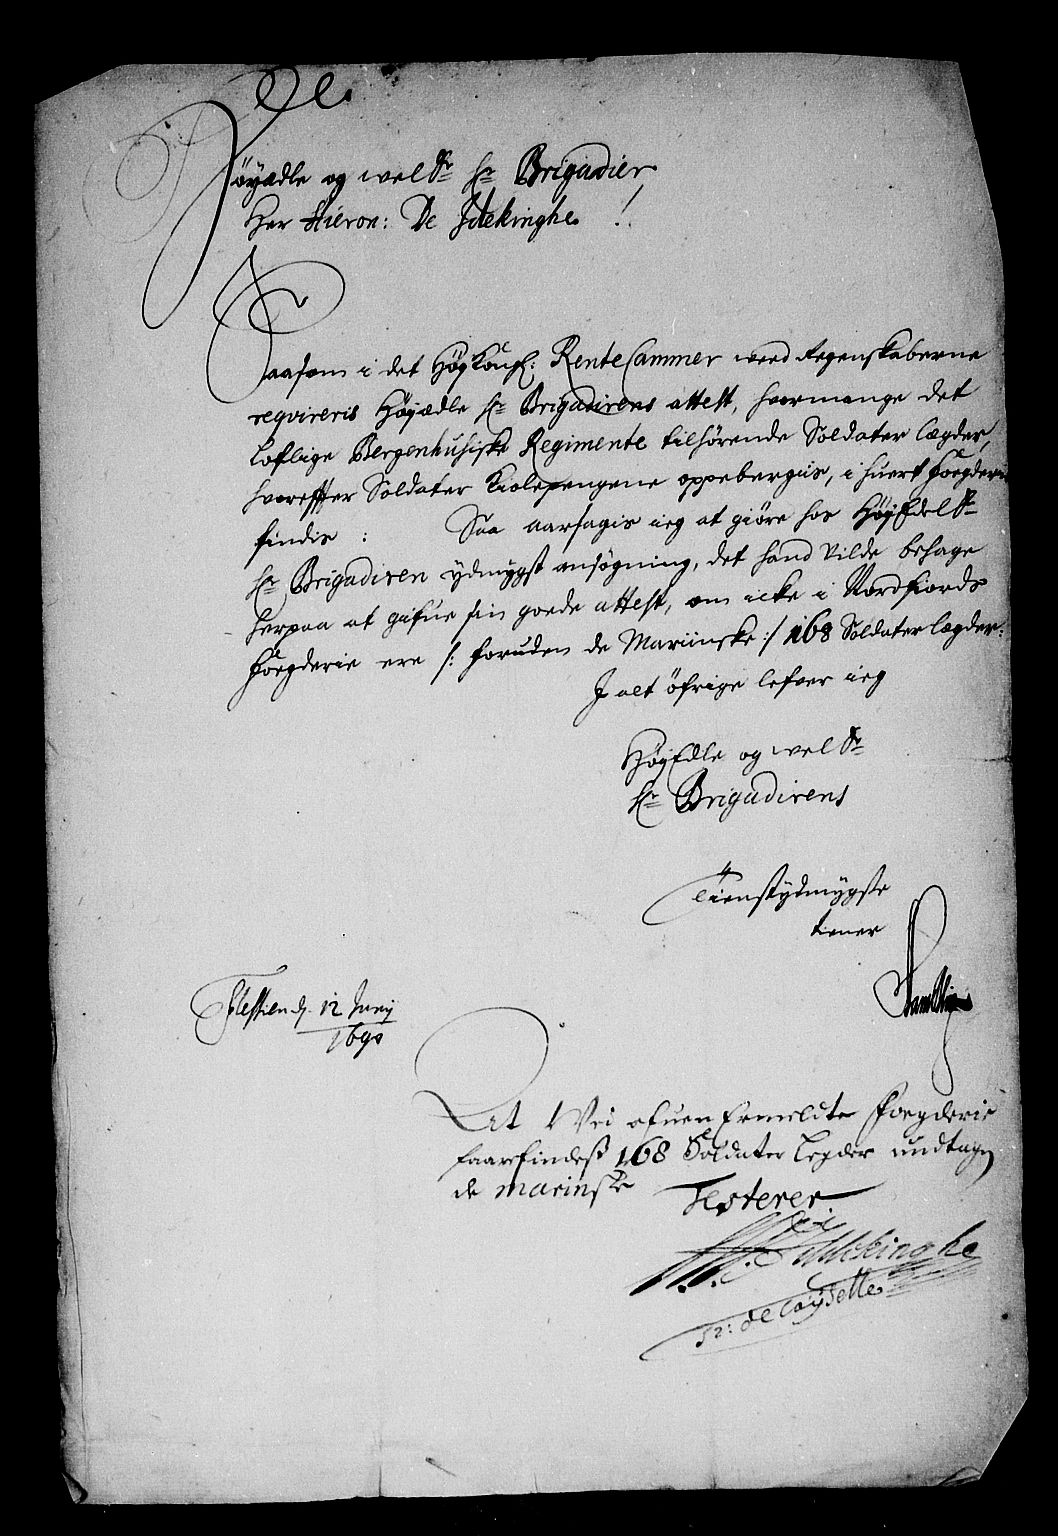 Höyædle og welbr: Hr: Brigadier
Her Hieron: De Jdekinghe !
Saasom i det HøyKongl: RenteCammer weed Regenskaberne
reqvireris Høyædle Hr: Brigadirens attest, hvormange det
Loflige Bergenhusiske Regimente tilhörende Soldater lægder,
hvorefter Soldater Kiolepengene oppebergis, i huert Foegderie
findis : Saa aarsagis ieg at giöre hos HøyEdelbr:
Hr: Brigadiren ydmygst ansögning, det hand Vilde behage
herpaa at gifue sin goede attest, om icke i Nordfiords
Foegderie ere /: foruden de Mariinske :/ 168 Soldater lægder:
J alt öfrige lefver ieg
HøyEdle og welbr:
Hr: Brigadirens
Tienstydmygste
tiener
d. 12 Junij
1690
At Wei ofuen Ermeldte Foegderie
faarefindeß 168 Soldater Legder undtagen
de marinske Testerer
Jddekinghe